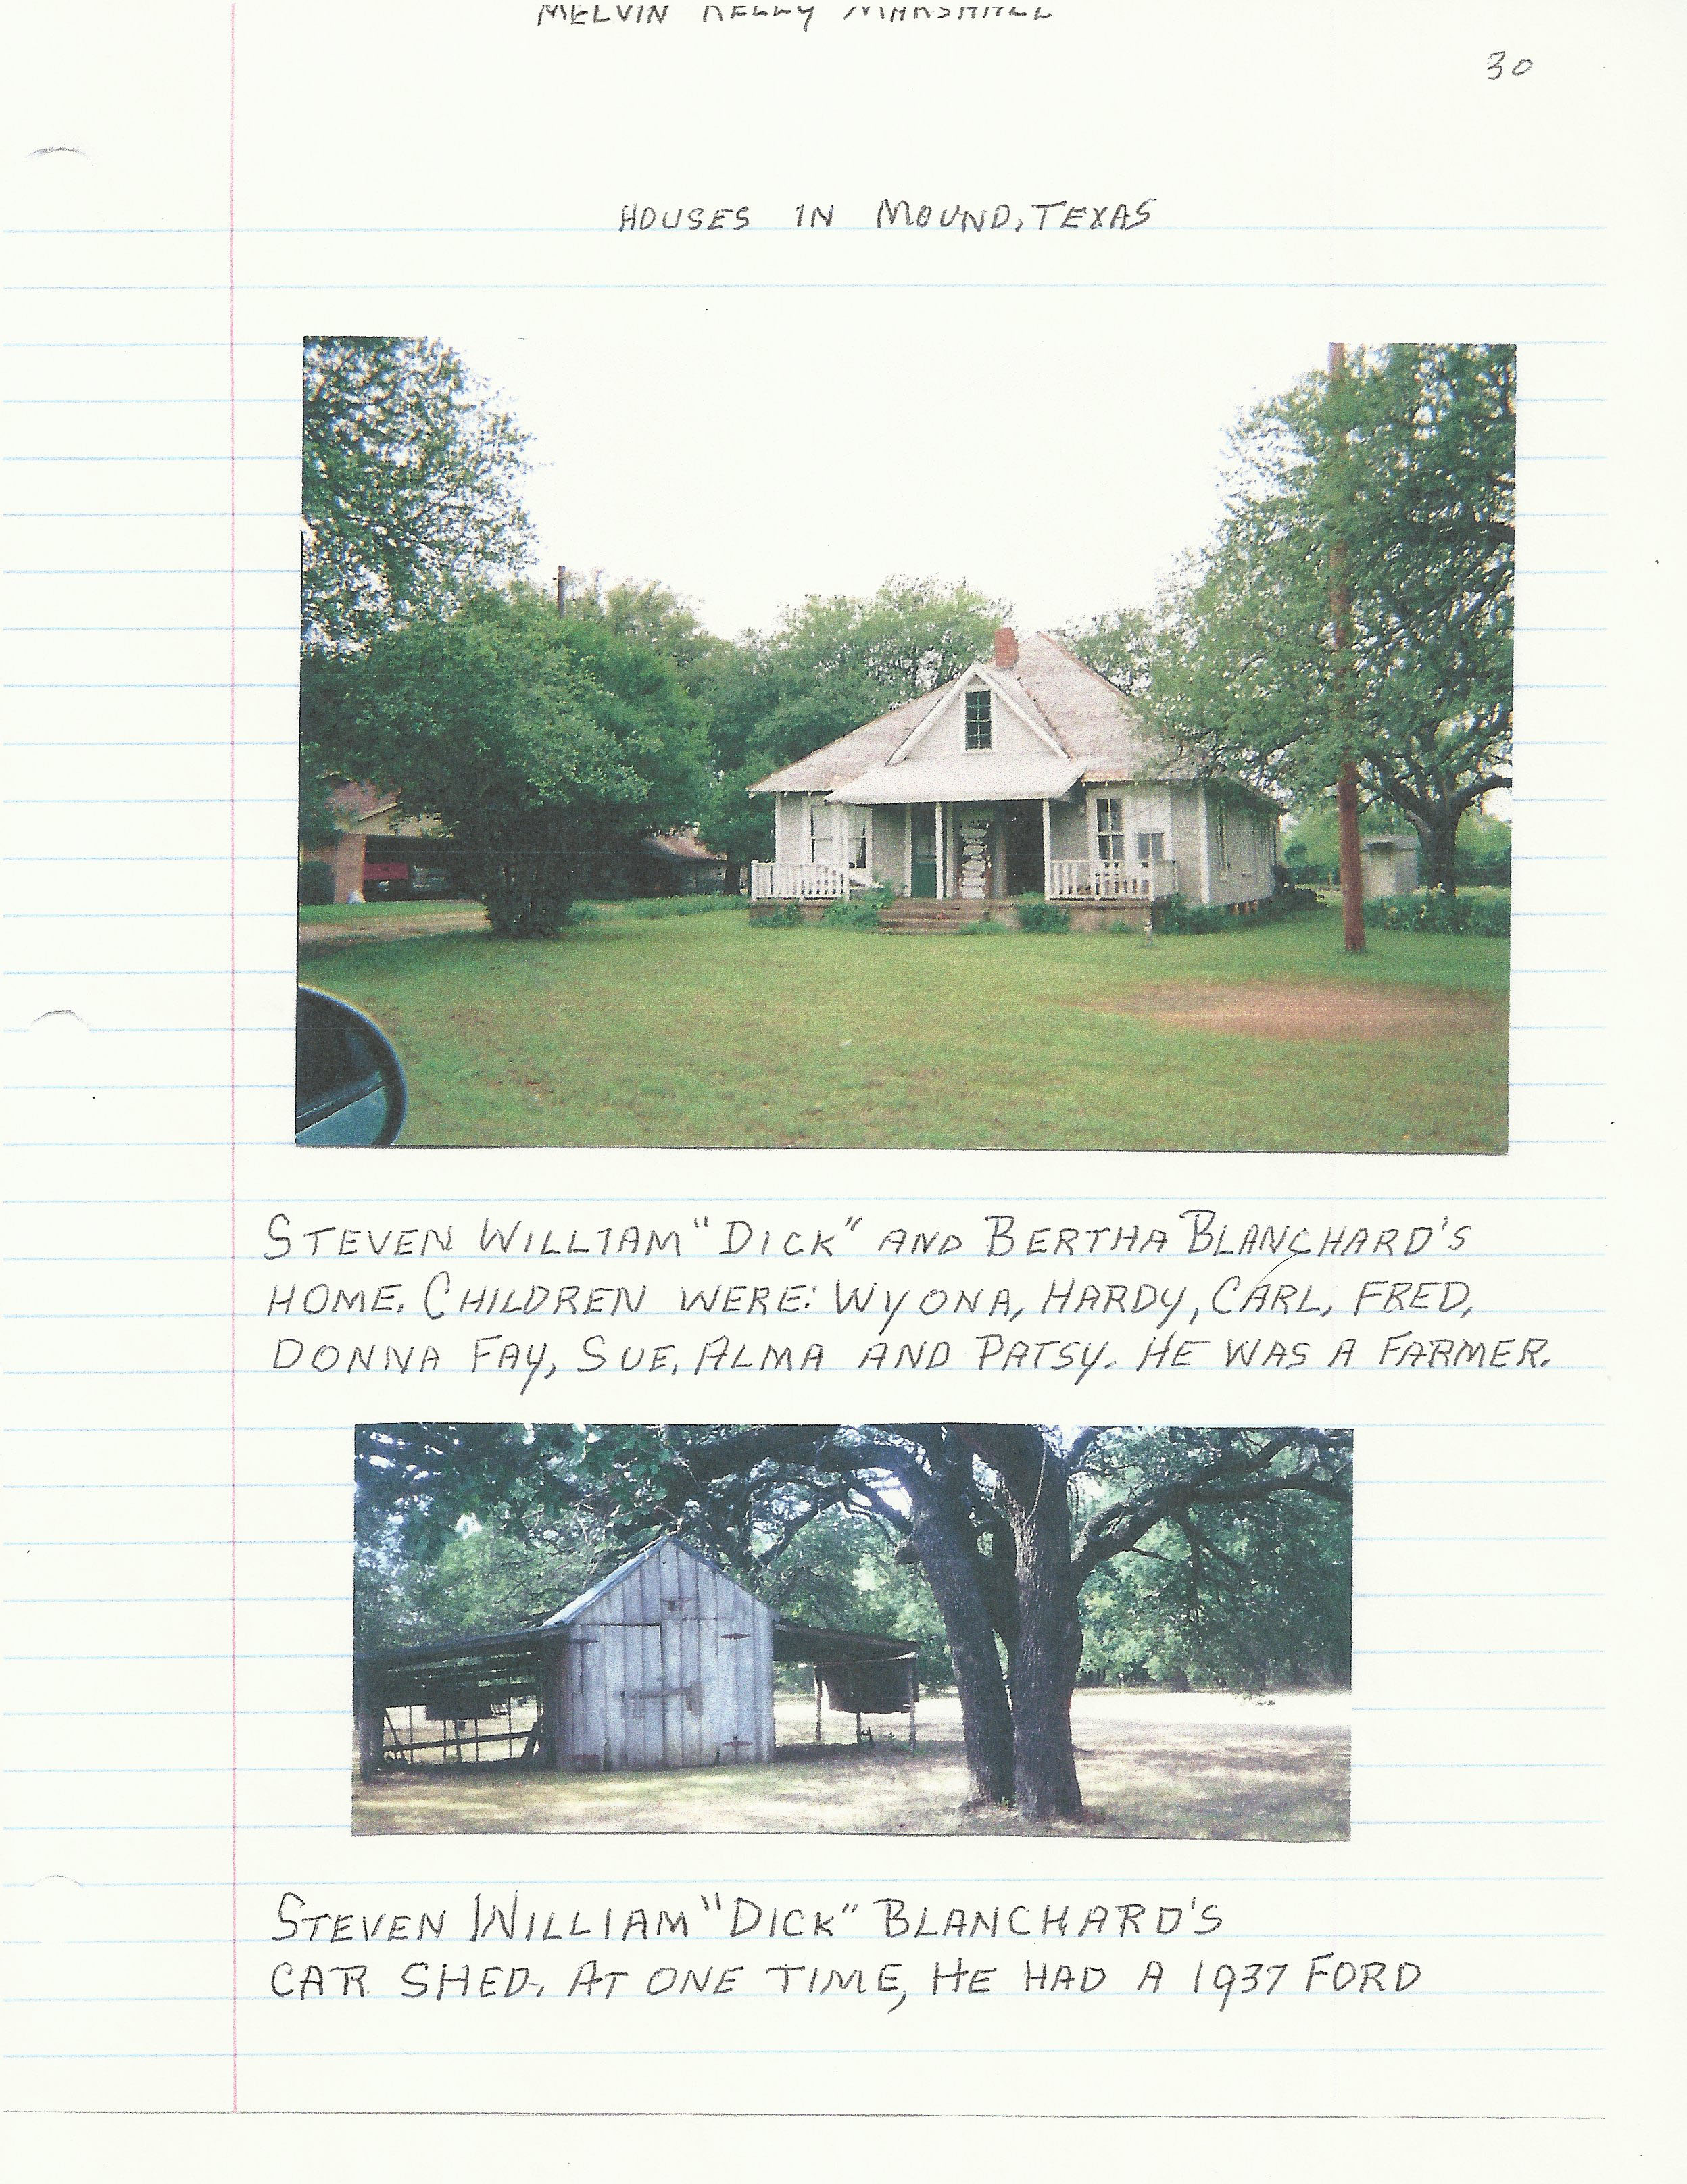 MELVIN KELLY MARSHALL
30
HOUSES IN MOUND, TEXAS
STEVEN WILLIAM "DICK" AND BERTHA BLANCHARD'S
HOME. CHILDREN WERE: WYONA, HARDY, CARL, FRED,
DONNA FAY, SUE, ALMA AND PATSY. HE WAS A FARMER.
STEVEN WILLIAM "DICK" BLANCHARD'S
CAR SHED. AT ONE TIME, HE HAD A 1937 FORD